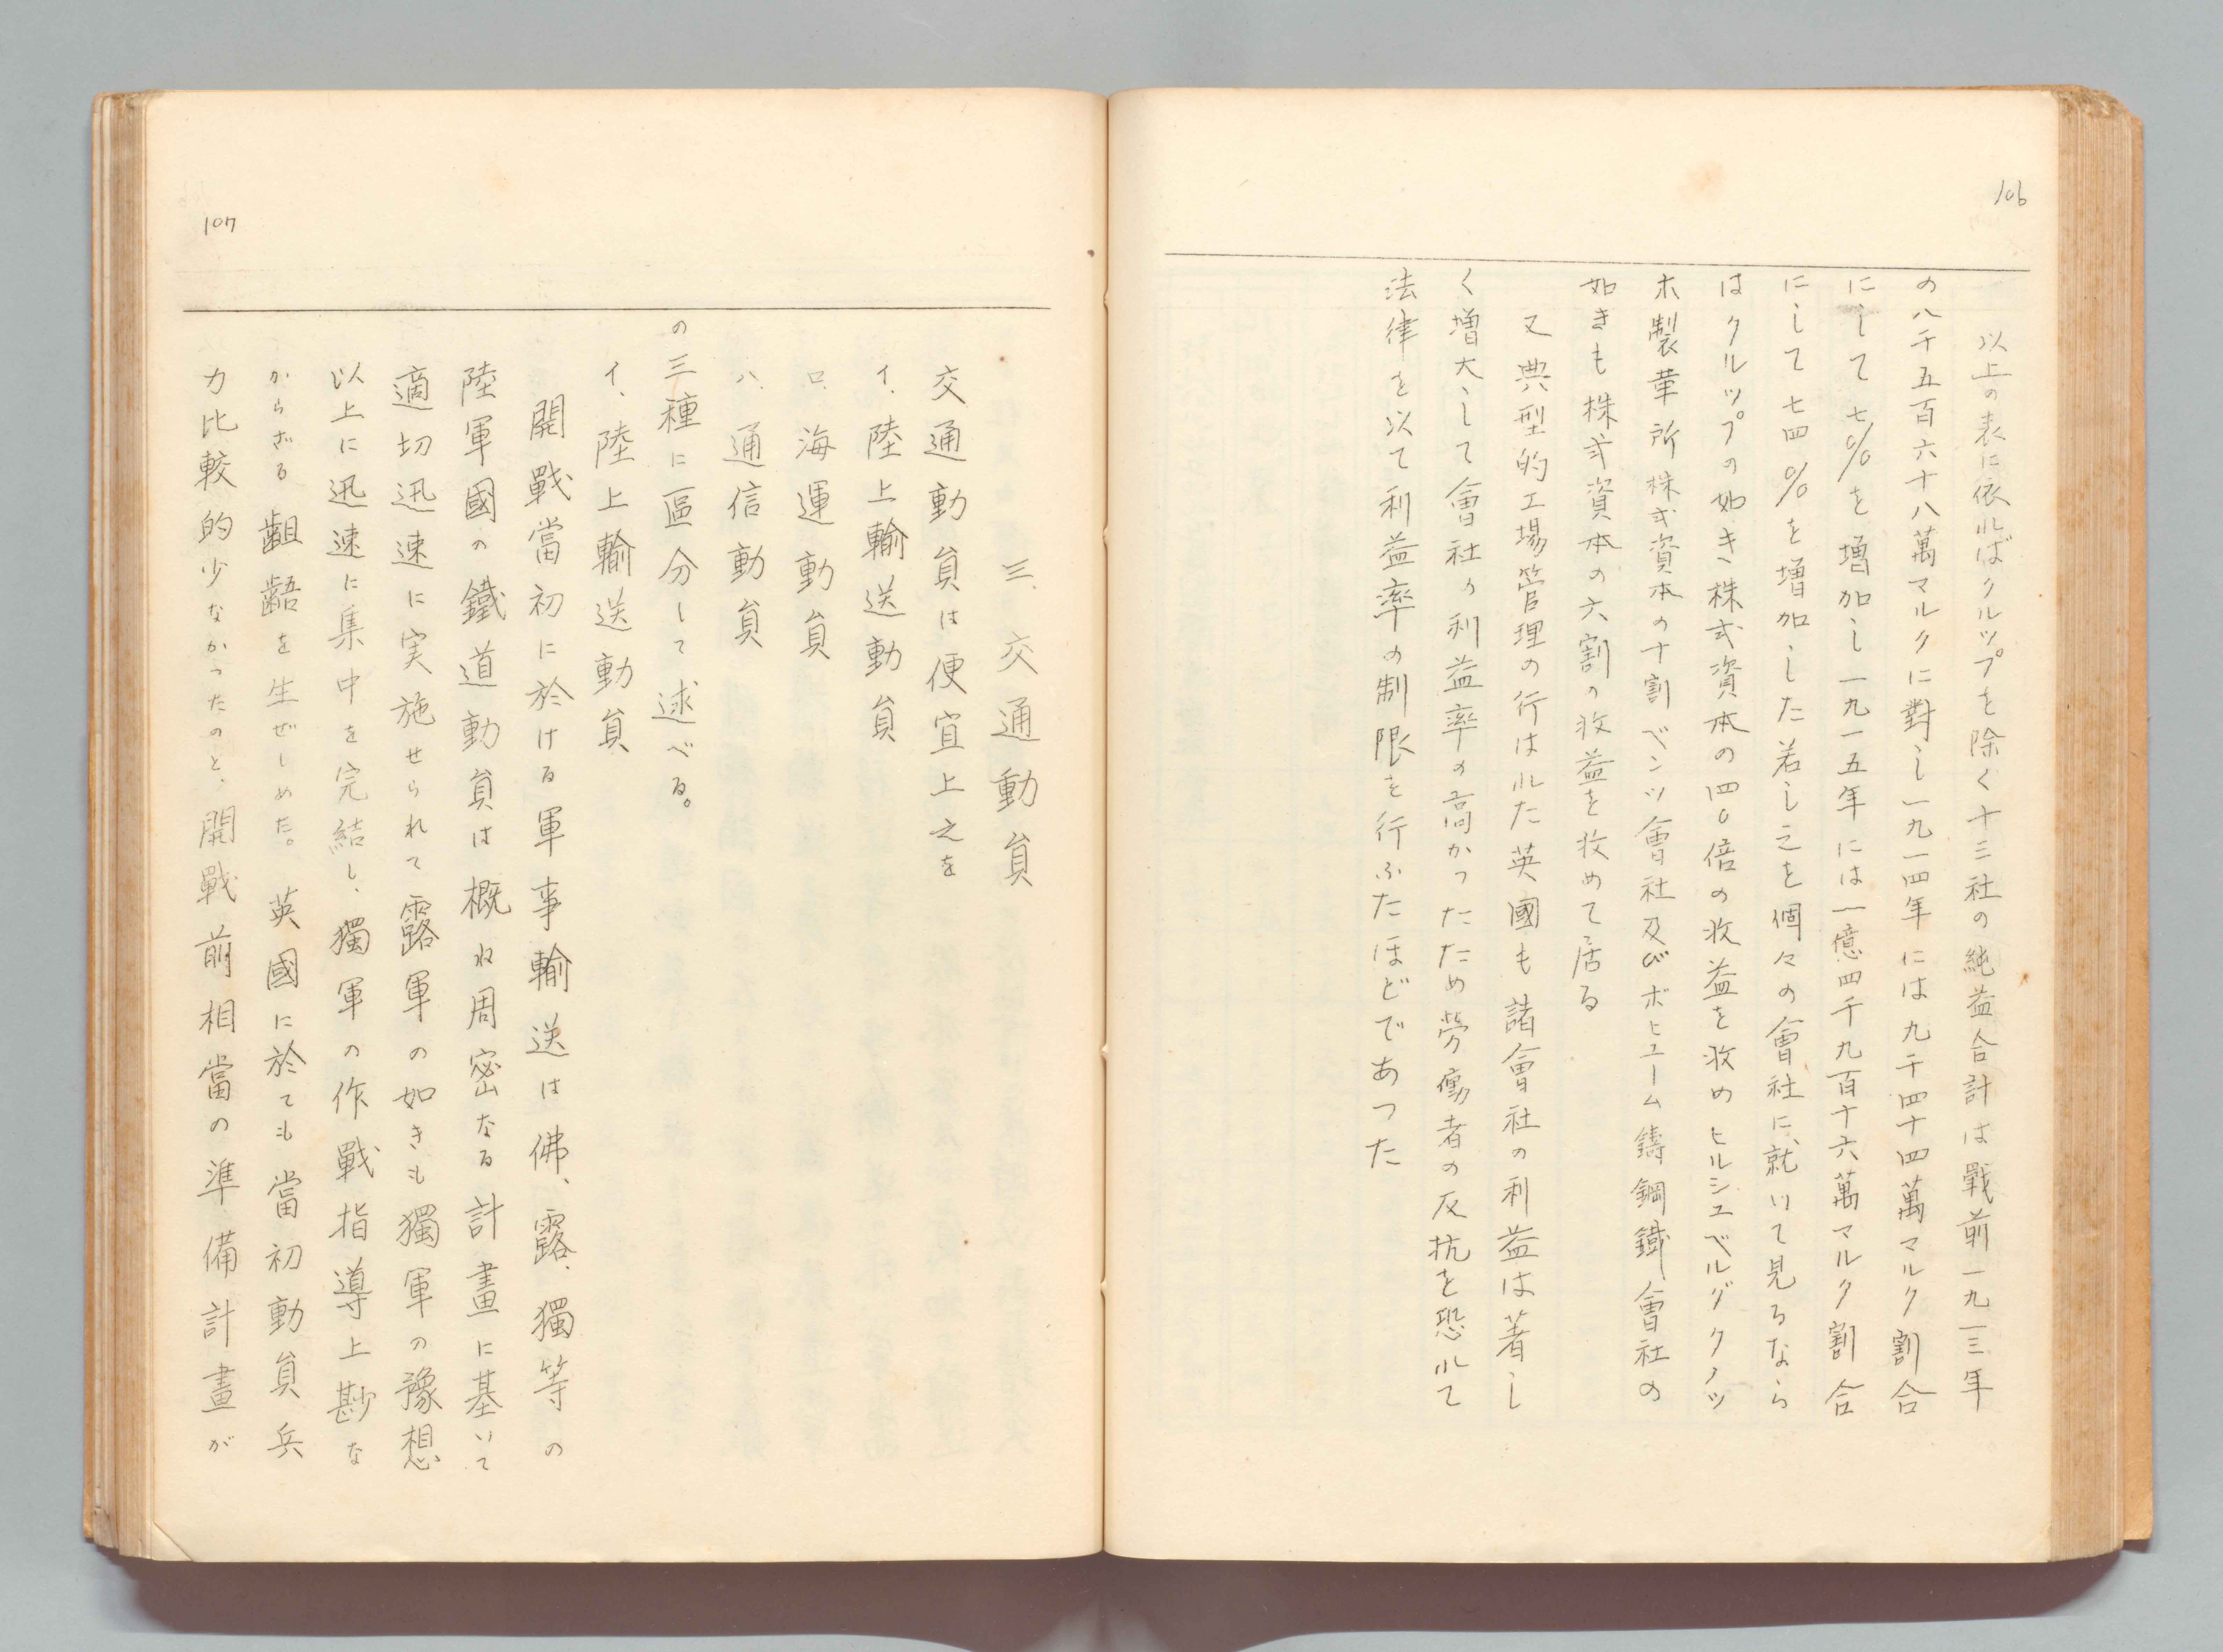 106
以上の表に依ればクルップを除く十三社の純益合計は戰前一九一三年
の八千五百六十八萬マルクに對し一九一四年には九千四十四萬マルク割合
にして七%を増加し一九一五年には一億四千九百十六萬マルク割合
にして七四%を増加した若し之を個々の會社に就いて見るなら
はクルップの如き株式資本の四0倍の收益を收めヒルシュベルグクノッ
ホ製革所株式資本の十割ベンツ會社及びボヒューム鑄鋼鐵會社の
如きも株式資本の六割の收益を收めて居る
又典型的工場管理の行はれた英國も諸會社の利益は著し
く増大して會社の利益率の高かったため勞働者の反抗を恐れて
法律を以て利益率の制限を行ふたほどであつた
107
三、交通動員
交通動員は便宜上之を
イ、陸上輸送動員
ロ、海運動員
ハ、通信動員
の三種に區分して逑べる。
イ、陸上輸送動員
開戰當初に於ける軍事輸送は佛、露、獨等の
陸軍國の鐵道動員は概ね周密なる計畫に基いて
適切迅速に実施せられて露軍の如きも獨軍の豫想
以上に迅速に集中を完結し、獨軍の作戰指導上尠な
からざる齟齬を生ぜしめた。英國に於ても當初動員兵
力比較的少なかったのと、開戰前相當の準備計畫が